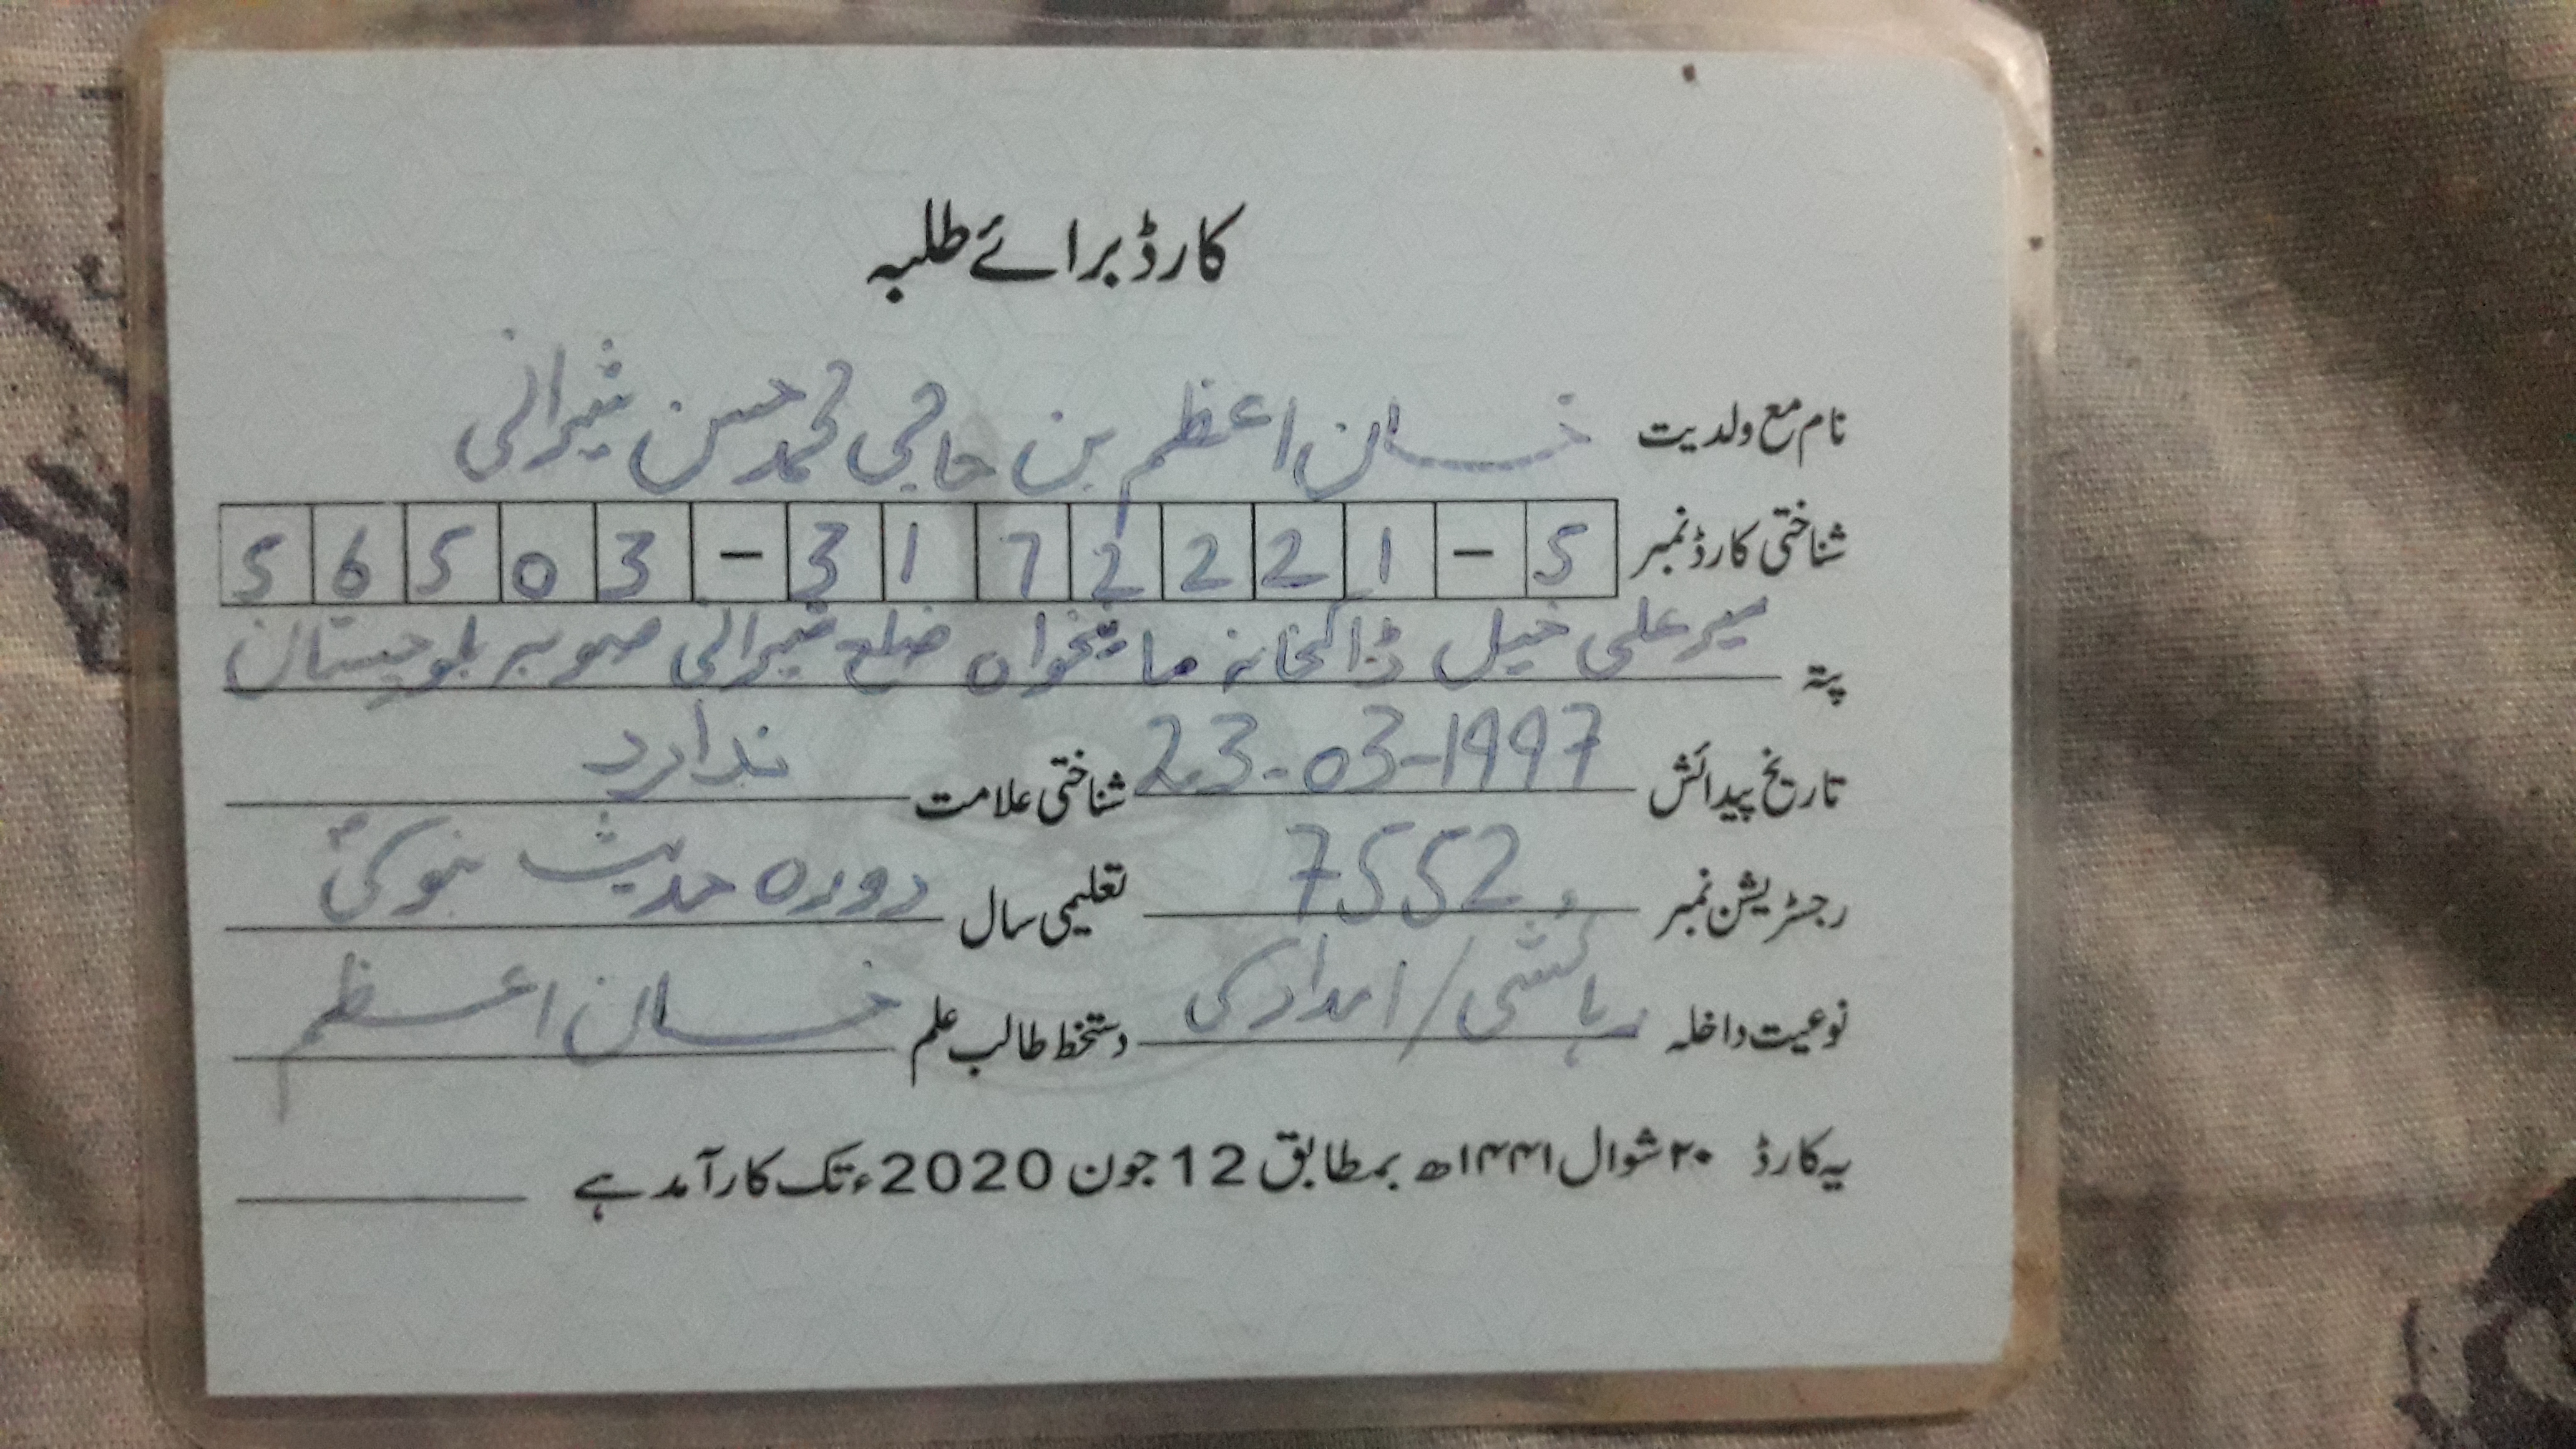 کارڈ برائے طلبہ
نام مع ولدیت خان اعظم بن حاجی محمد حسن شیرانی
شناختی کارڈ نمبر 56503-3172221-5
پتہ میر علی خیل ڈاکخانہ مانیخواہ ضلع شیرانی صوبہ بلوچستان
تاریخ پیدائش 23-03-1997 شناختی علامت ندارد
رجسٹریشن نمبر 7552 تعلیمی سال دورہ حدیث
نوعیت داخلہ رہائشی/امدادی دستخط طالب علم خان اعظم
یہ کارڈ ۲۰ شوال ۱۴۴۱ھ بمطابق 12 جون 2020ء تک کارآمد ہے